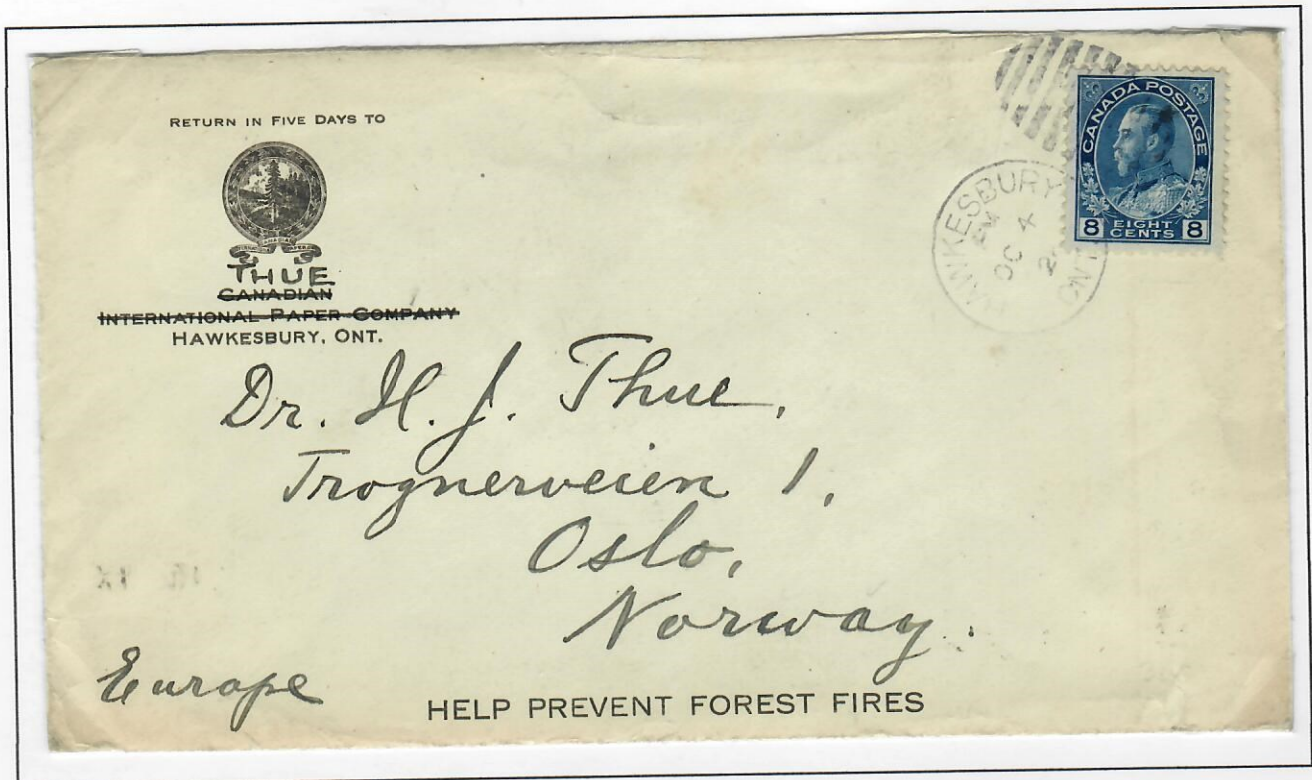 RETURN IN FIVE DAYS TO
THUE
CANADIAN
INTERNATIONAL PAPER COMPANY
HAWKESBURY, ONT.
CANADA POSTAGE
8 EIGHT CENTS 8
HAWKESBURY ONT
PM
OC 4
2
Dr. H. J. Thue,
Trognerveien 1,
Oslo,
Norway.
Europe
HELP PREVENT FOREST FIRES